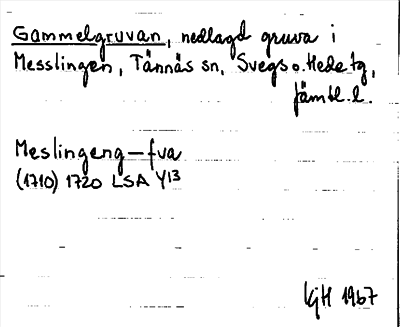 Gammelgruvan, nedlagd gruva i
Messlingen, Tännäs sn, Svegs o. Hede tg,
Jämtl. l.
Meslingeng – fva
(1710) 1720 LSA Y13
KjH 1967